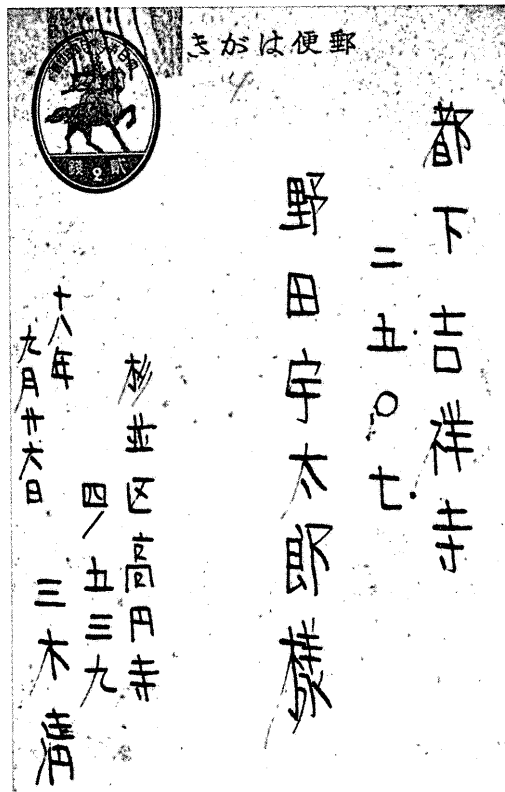 郵便はがき
都下吉祥寺
二五〇七
野田宇太郎様
杉並区高円寺
四ノ五三九
三木清
十八年
九月廿六日
貳 2 銭